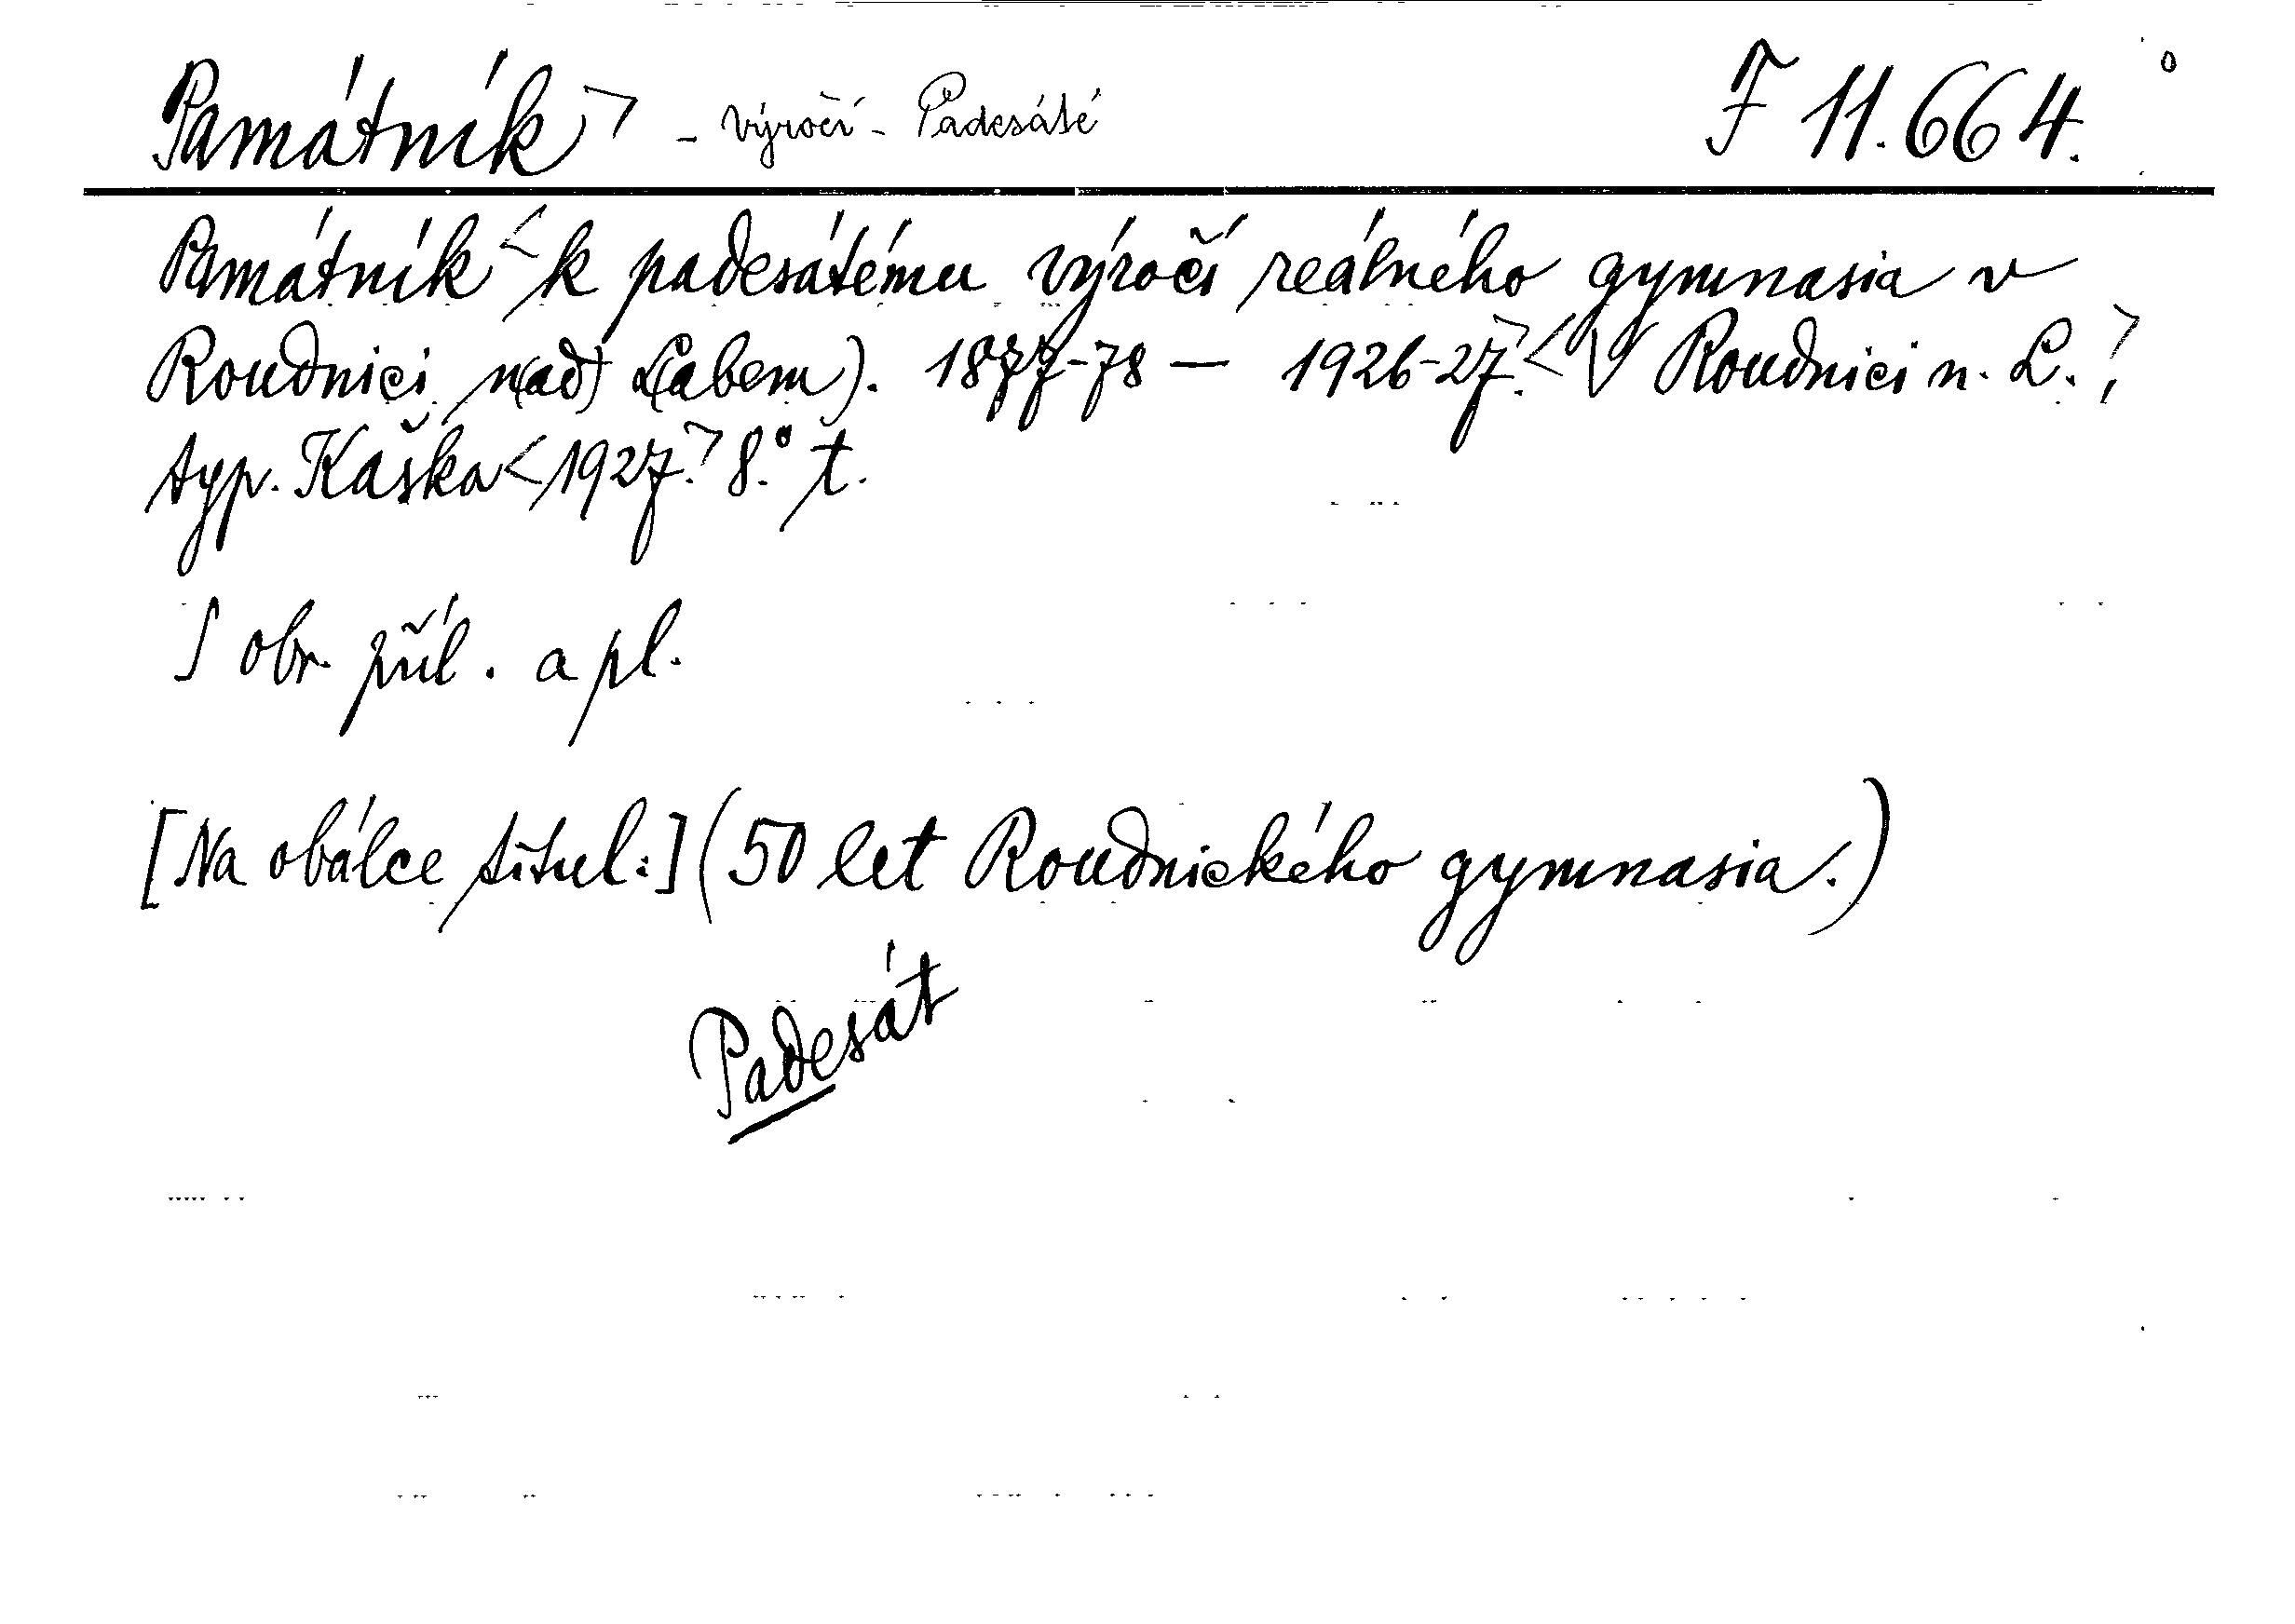 Památník > - výročí - Padesáté F 11.664.
Památník < k padesátému výročí reálného gymnasia v
Roudnici n(ad) L(abem). 1877-78 — 1926-27. > < V Roudnici n. L., >
typ. Kaška < 1927. > 8.° t.
S obr. příl. a pl.
[Na obálce titul:] (50 let Roudnického gymnasia.)
Padesát